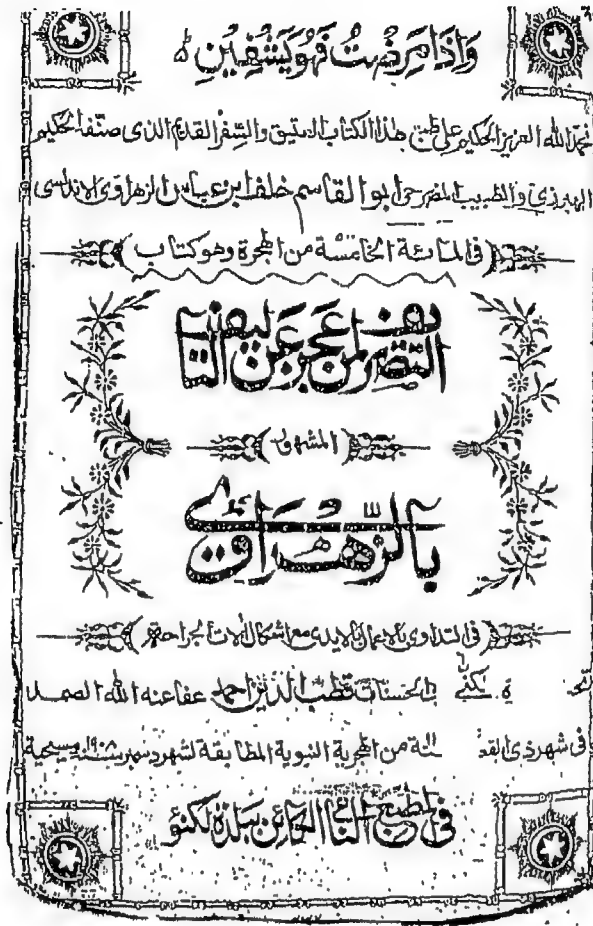 وَاِذَا مَرِضْتُ فَهُوَ يَشْفِيْنِ
نحمد الله العزيز الحكيم على طبع هذا الكتاب العتيق والسِّفر القديم الذى صنّفه الحكيم
الهبرزى والطبيب ابو القاسم خلف ابن عباس الزهراوى الاندلسى
فى المائة الخامسة من الهجرة وهو كتاب
التصريف لمن عجز عن التاليف
المشهور
بالزّهراوى
فى التداوى بالاعمال الايدى مع اشكال الات الجراحة
يكنى بالحسنات قطب الدين احمد عفا عنه الله الصمد
فى شهر ذى القعد من الهجرية النبوية المطابقة لشهر دسمبر سنة ١٩٠٨ مسيحية
فى المطبع النامى الكائن ببلدة لكنؤ